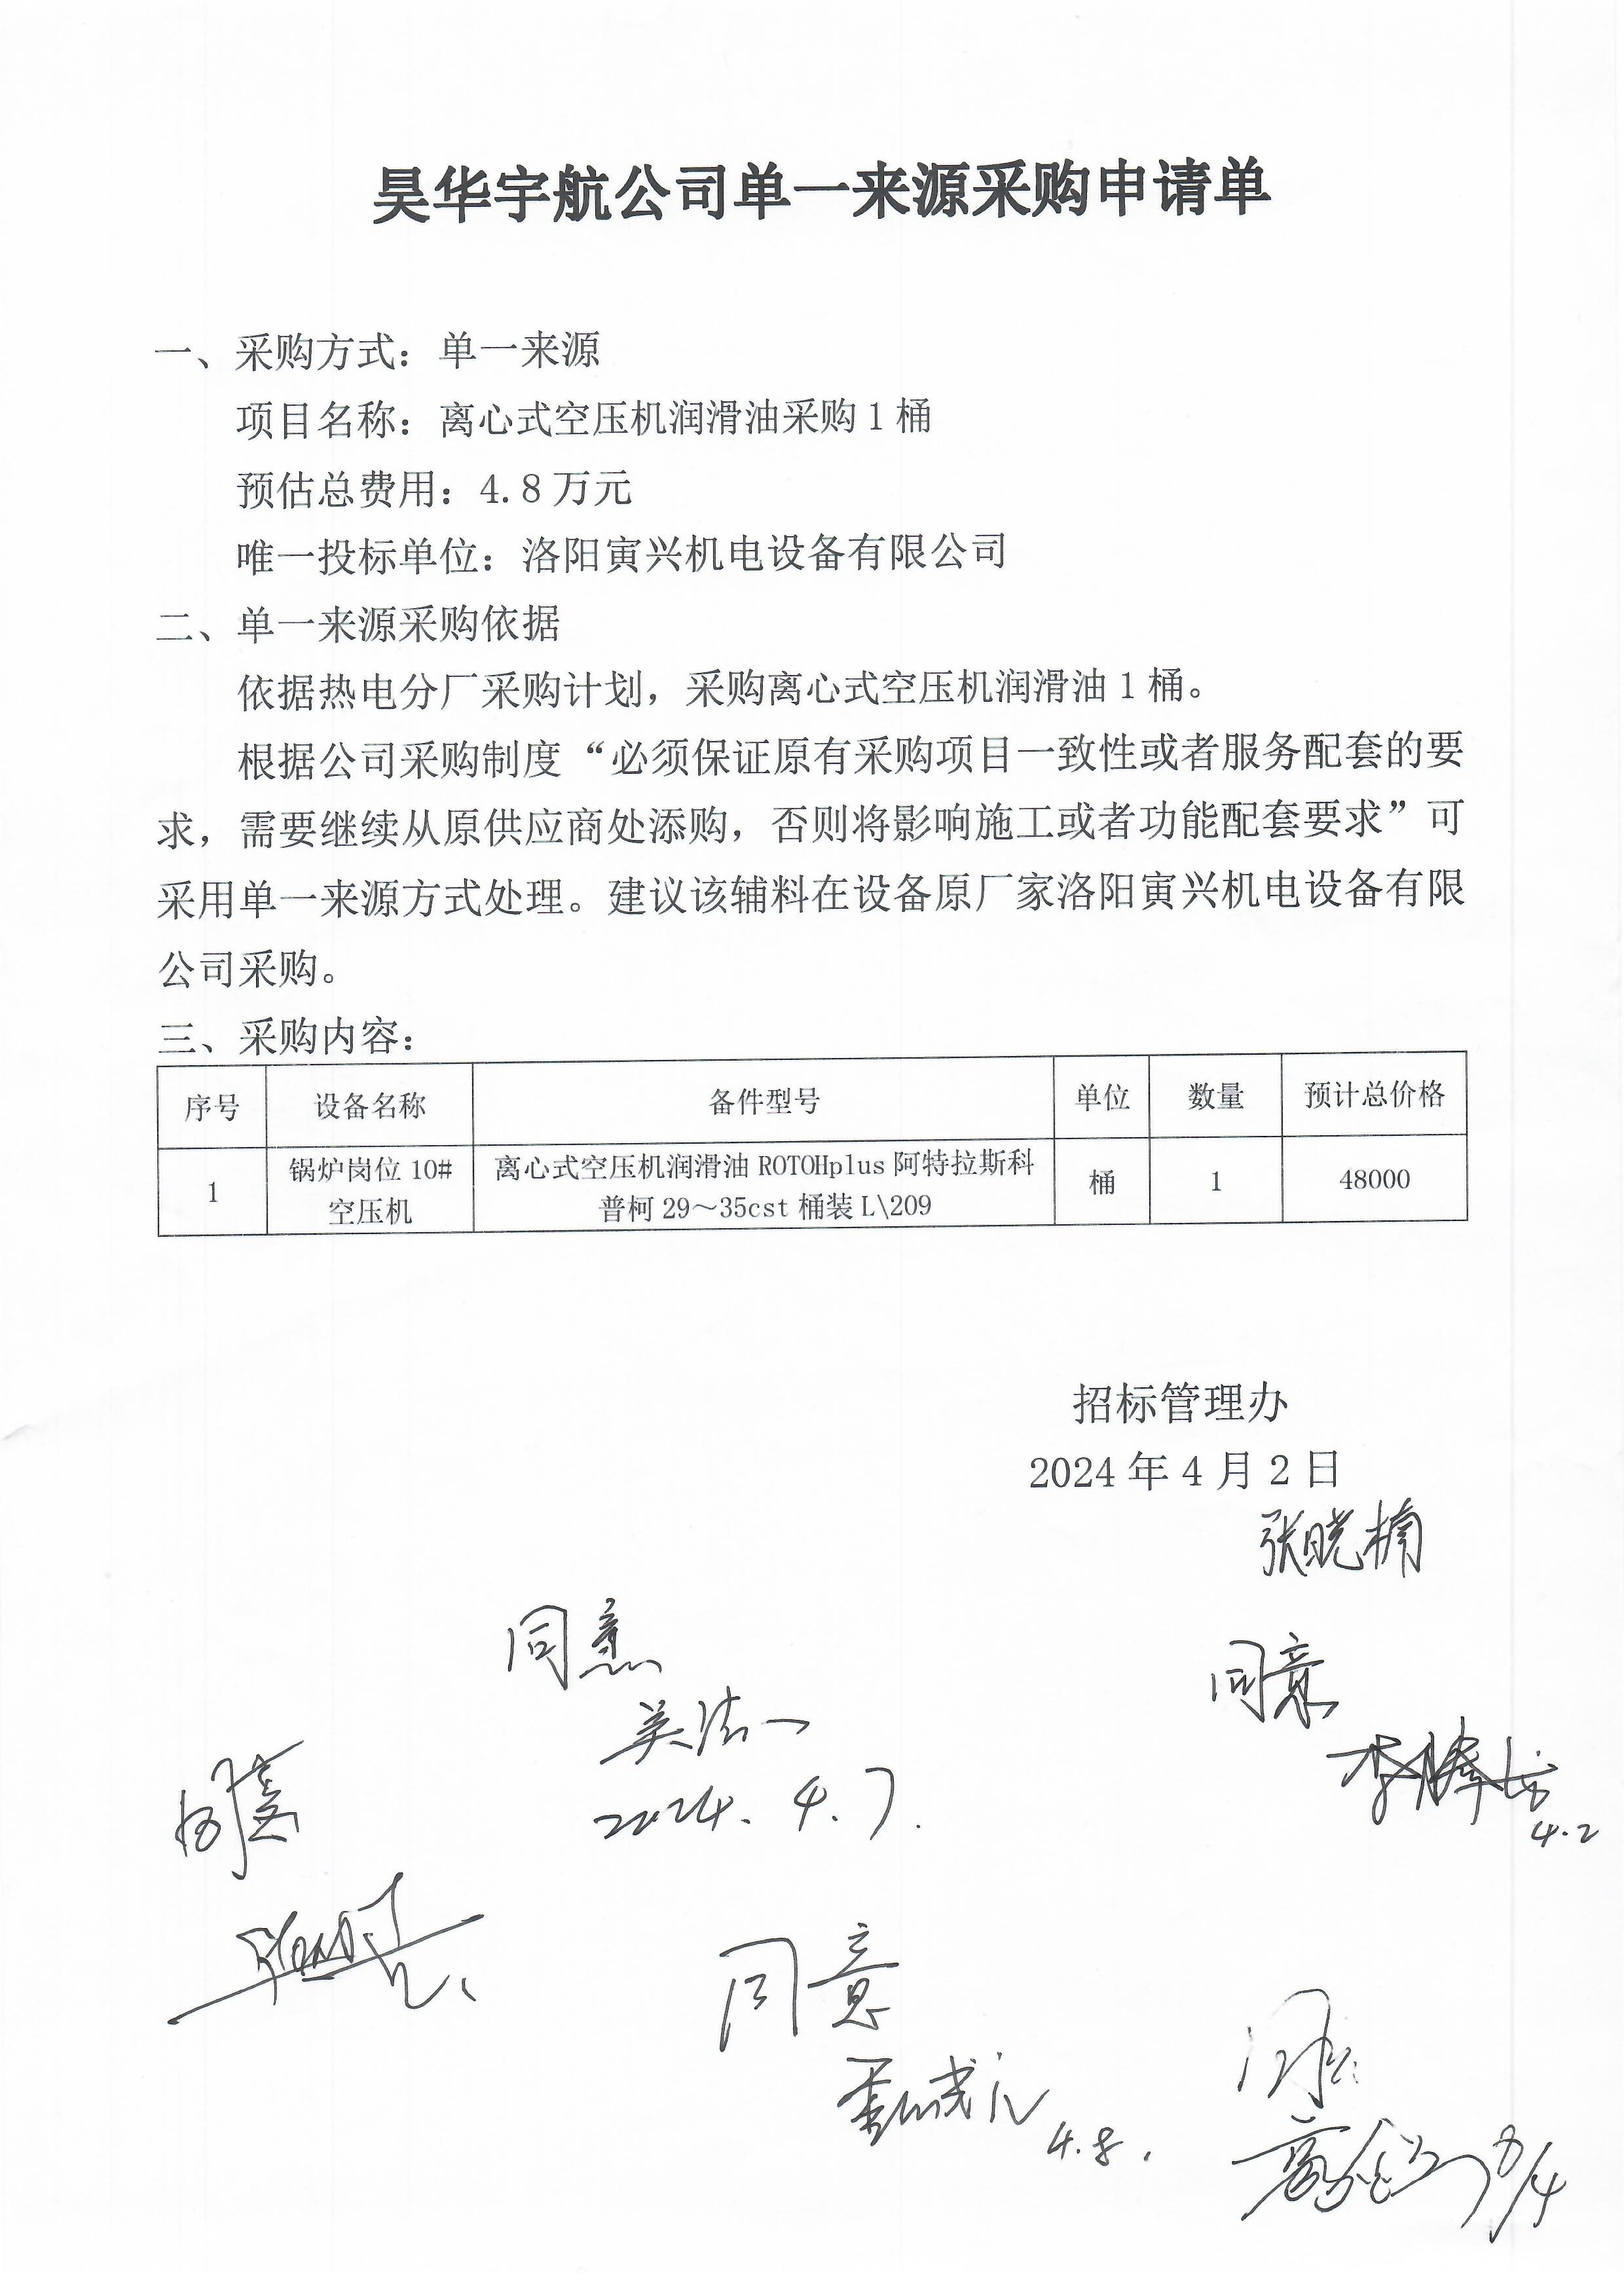 昊华宇航公司单一来源采购申请单
一、采购方式：单一来源
项目名称：离心式空压机润滑油采购1桶
预估总费用：4.8万元
唯一投标单位：洛阳寅兴机电设备有限公司
二、单一来源采购依据
依据热电分厂采购计划，采购离心式空压机润滑油1桶。
根据公司采购制度“必须保证原有采购项目一致性或者服务配套的要
求，需要继续从原供应商处添购，否则将影响施工或者功能配套要求”可
采用单一来源方式处理。建议该辅料在设备原厂家洛阳寅兴机电设备有限
公司采购。
三、采购内容：
序号 设备名称 备件型号 单位 数量 预计总价格
1 锅炉岗位10# 离心式空压机润滑油ROTOHplus阿特拉斯科 桶 1 48000
空压机 普柯29～35cst桶装L\209
招标管理办
2024年4月2日
张晓楠
同意
同意
2024.4.7.
4.2
同意
同意
4.8.
同意
8/4